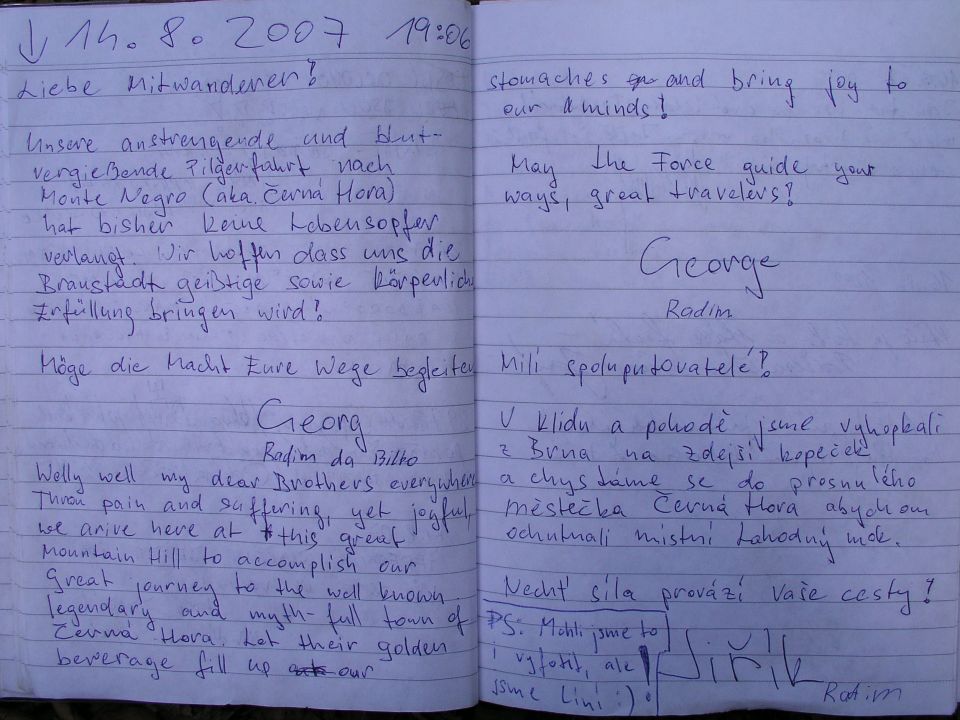 ↓ 14. 8. 2007 19:06
Liebe Mitwanderer!
Unsere anstrengende und blut-
vergießende Pilgerfahrt nach
Monte Negro (aka. Černá Hora)
hat bisher keine Lebensopfer
verlangt. Wir hoffen dass uns die
Braustadt geißtige sowie körperlich
Erfüllung bringen wird!
Möge die Macht Eure Wege begleiten
Georg
Radim da Bilko
Welly well my dear Brothers everywhere
Throu pain and suffering, yet joyful,
we arive here at this great
Mountain Hill to accomplish our
great journey to the well known
legendary and myth-full town of
Černá Hora. Let their golden
beverage fill up our
stomaches and bring joy to
our minds!
May the Force guide your
ways, great travelers!
George
Radim
Milí spoluputovatelé!
V klidu a pohodě jsme vyhopkali
z Brna na zdejší kopeček
a chystáme se do prosnulého
městečka Černá Hora abychom
ochutnali místní lahodný mok.
Nechť síla provází vaše cesty!
PS: Mohli jsme to
i vyfotit, ale
jsme líní :)
Jiřík
Radim